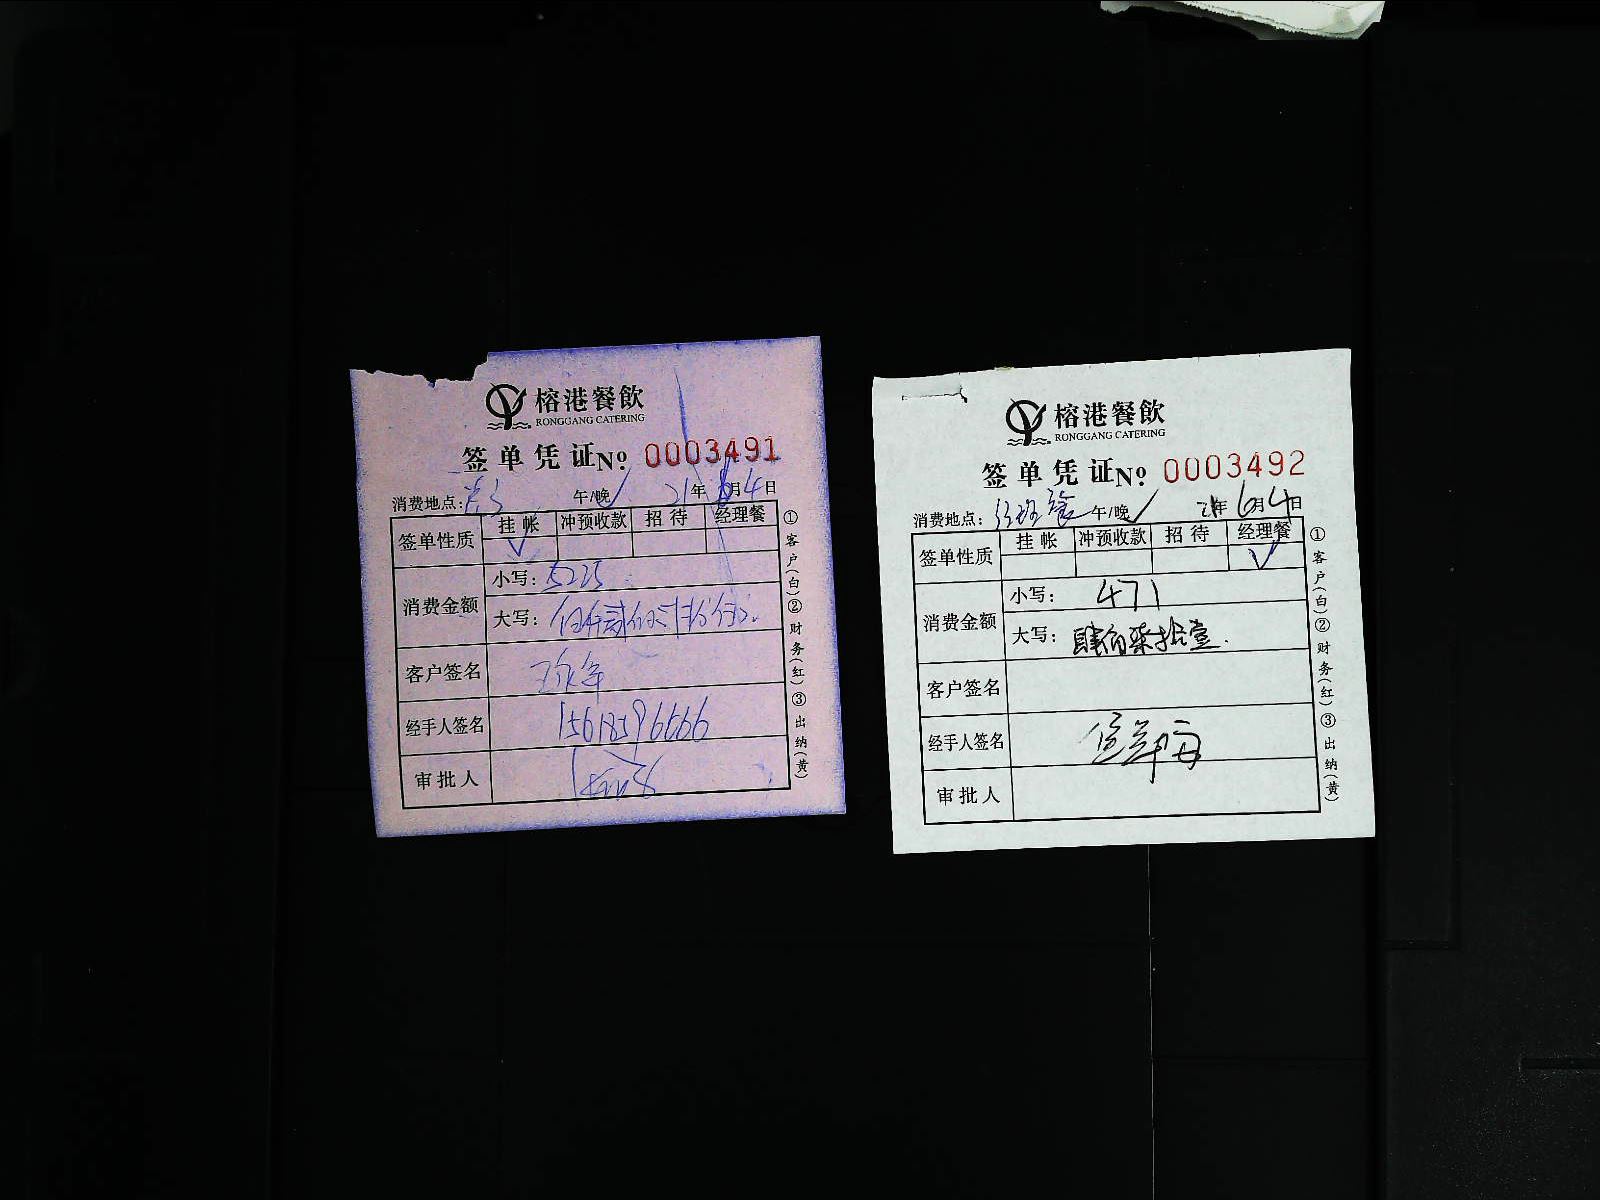 榕港餐飲
RONGGANG CATERING
签单凭证№ 0003491
消费地点: 午/晚✓ 21年6月4日
签单性质 挂帐 冲预收款 招待 经理餐
✓
消费金额 小写: 5225
大写: 伍仟贰佰
客户签名
经手人签名 15618596666
审批人
①客户(白)②财务(红)③出纳(黄)
榕港餐飲
RONGGANG CATERING
签单凭证№ 0003492
消费地点: 午/晚✓ 21年6月4日
签单性质 挂帐 冲预收款 招待 经理餐
✓
消费金额 小写: 471
大写: 肆佰柒拾壹.
客户签名
经手人签名
审批人
①客户(白)②财务(红)③出纳(黄)